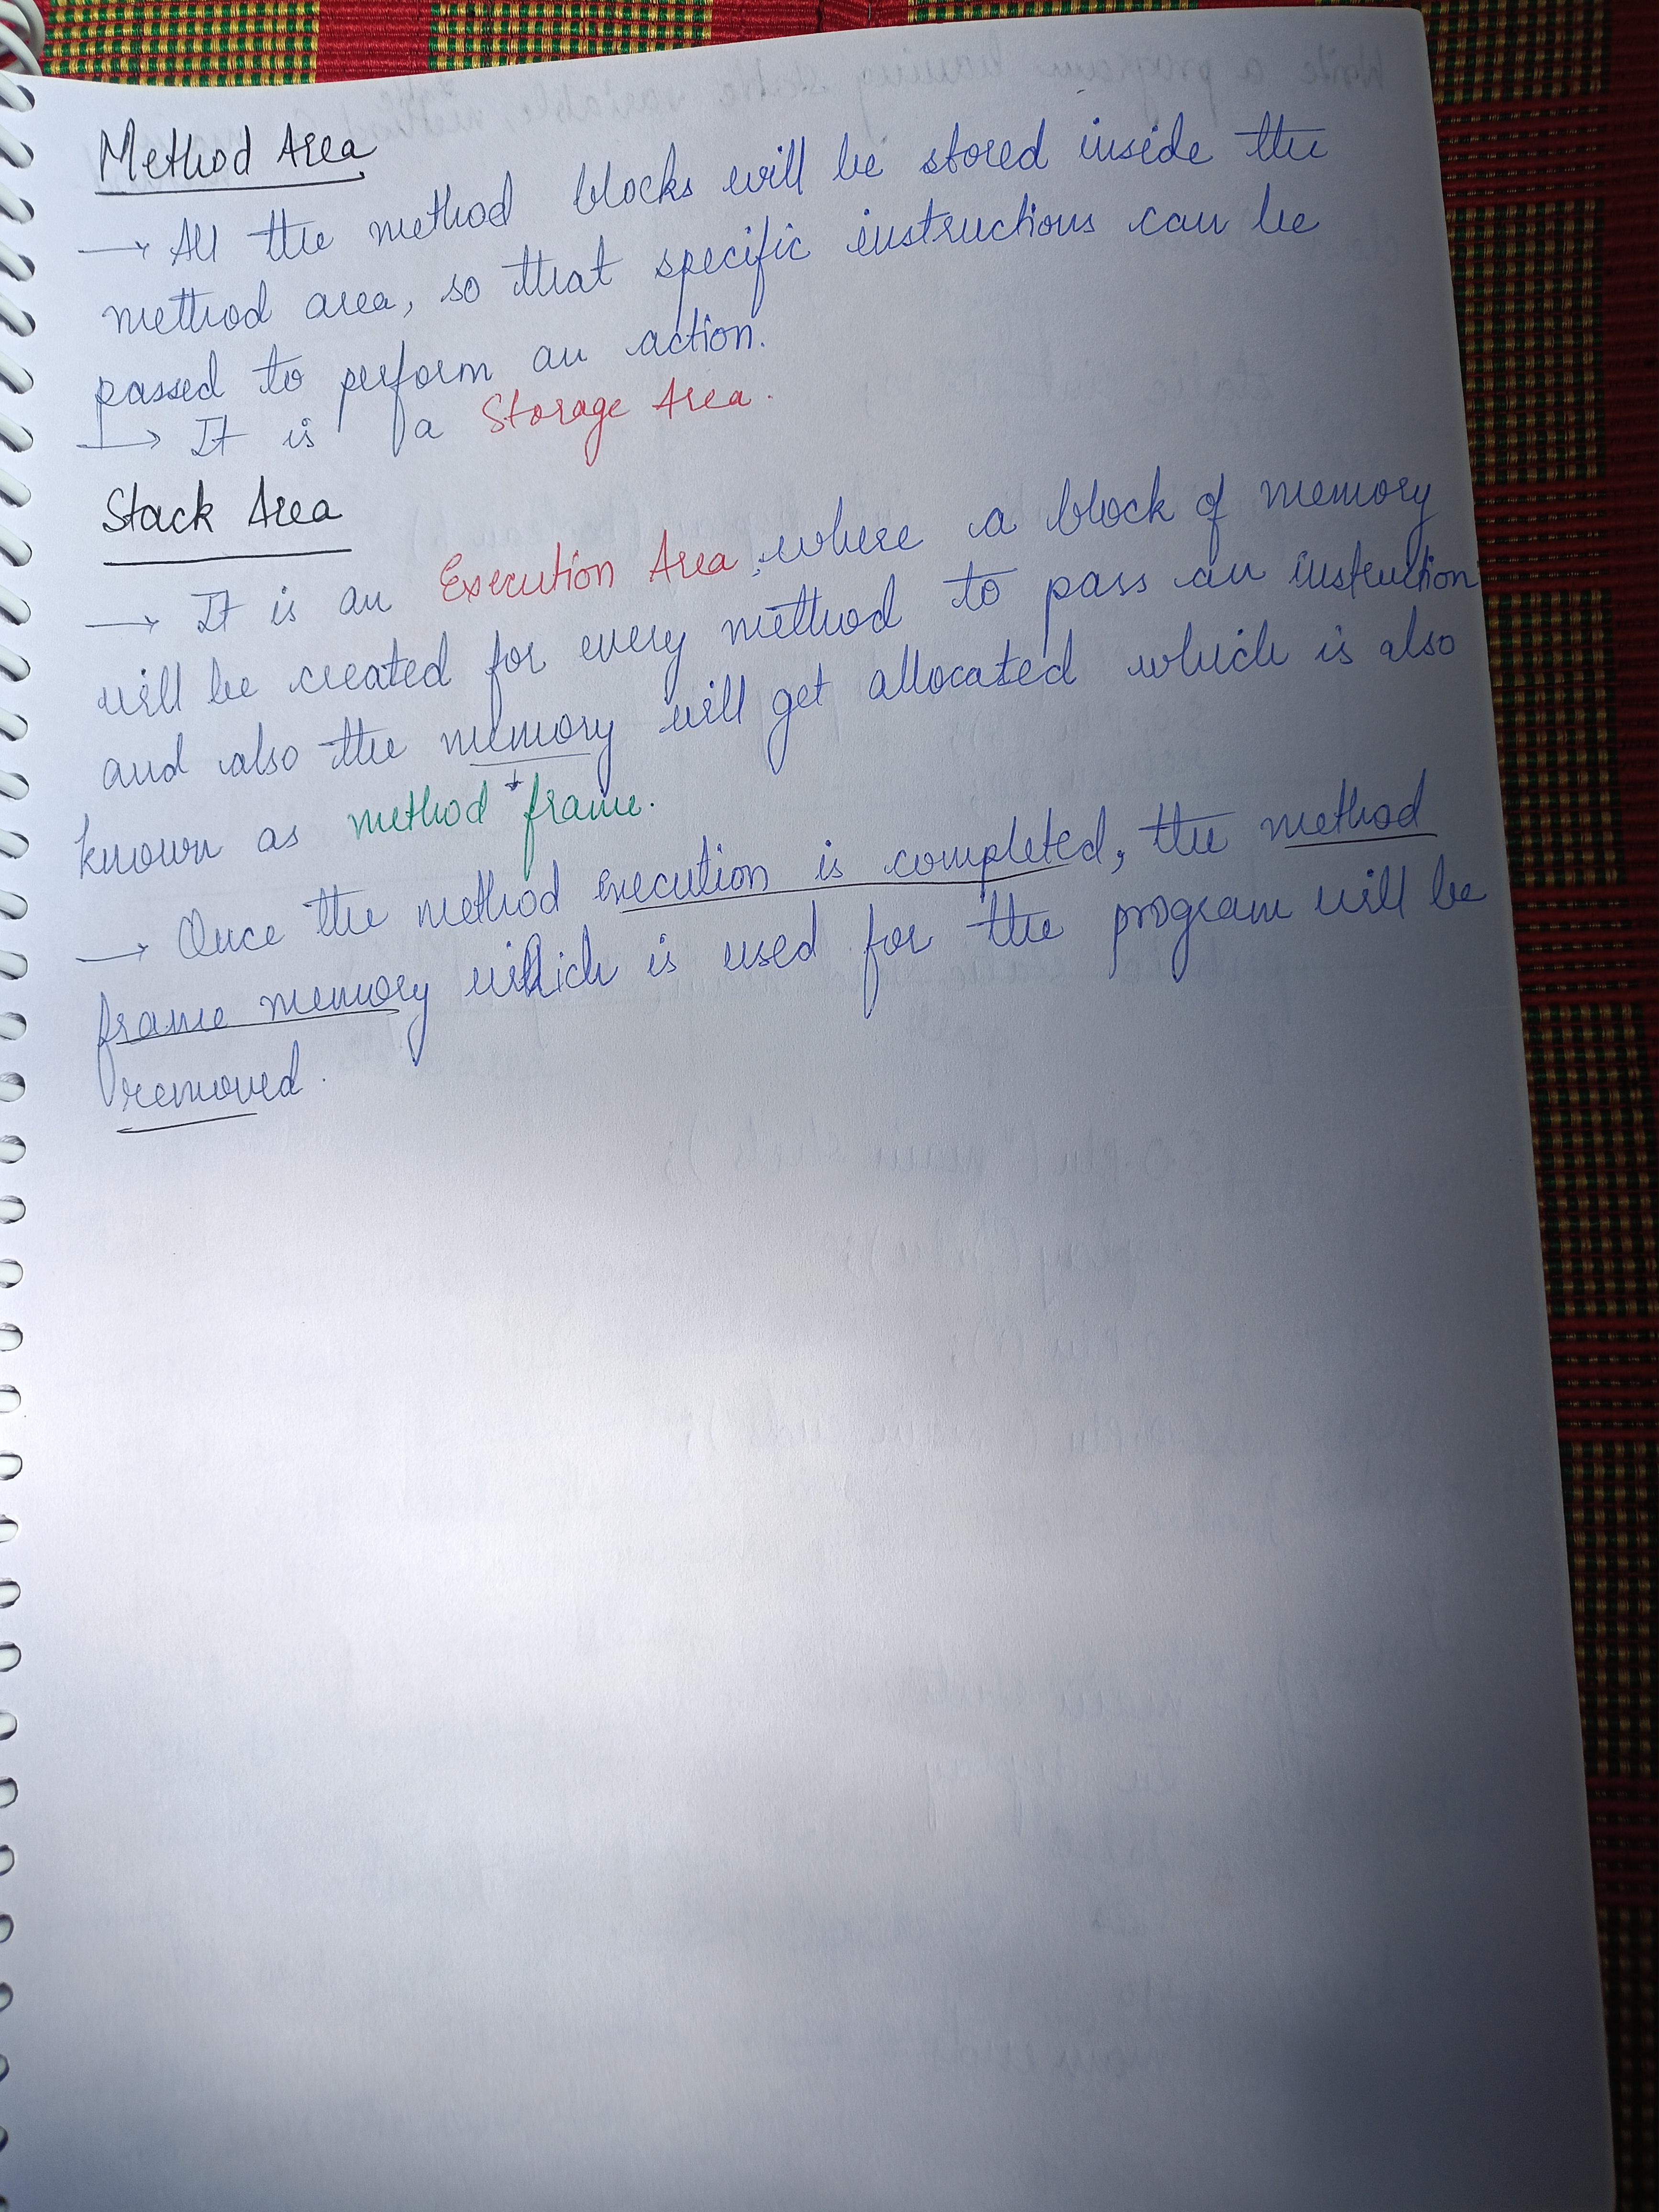 Method Area
→ All the method blocks will be stored inside the
method area, so that specific instructions can be
passed to perform an action.
→ It is a Storage Area.
Stack Area
→ It is an Execution Area, where a block of memory
will be created for every method to pass an instruction
and also the memory will get allocated which is also
known as method frame.
→ Once the method execution is completed, the method
frame memory which is used for the program will be
removed.